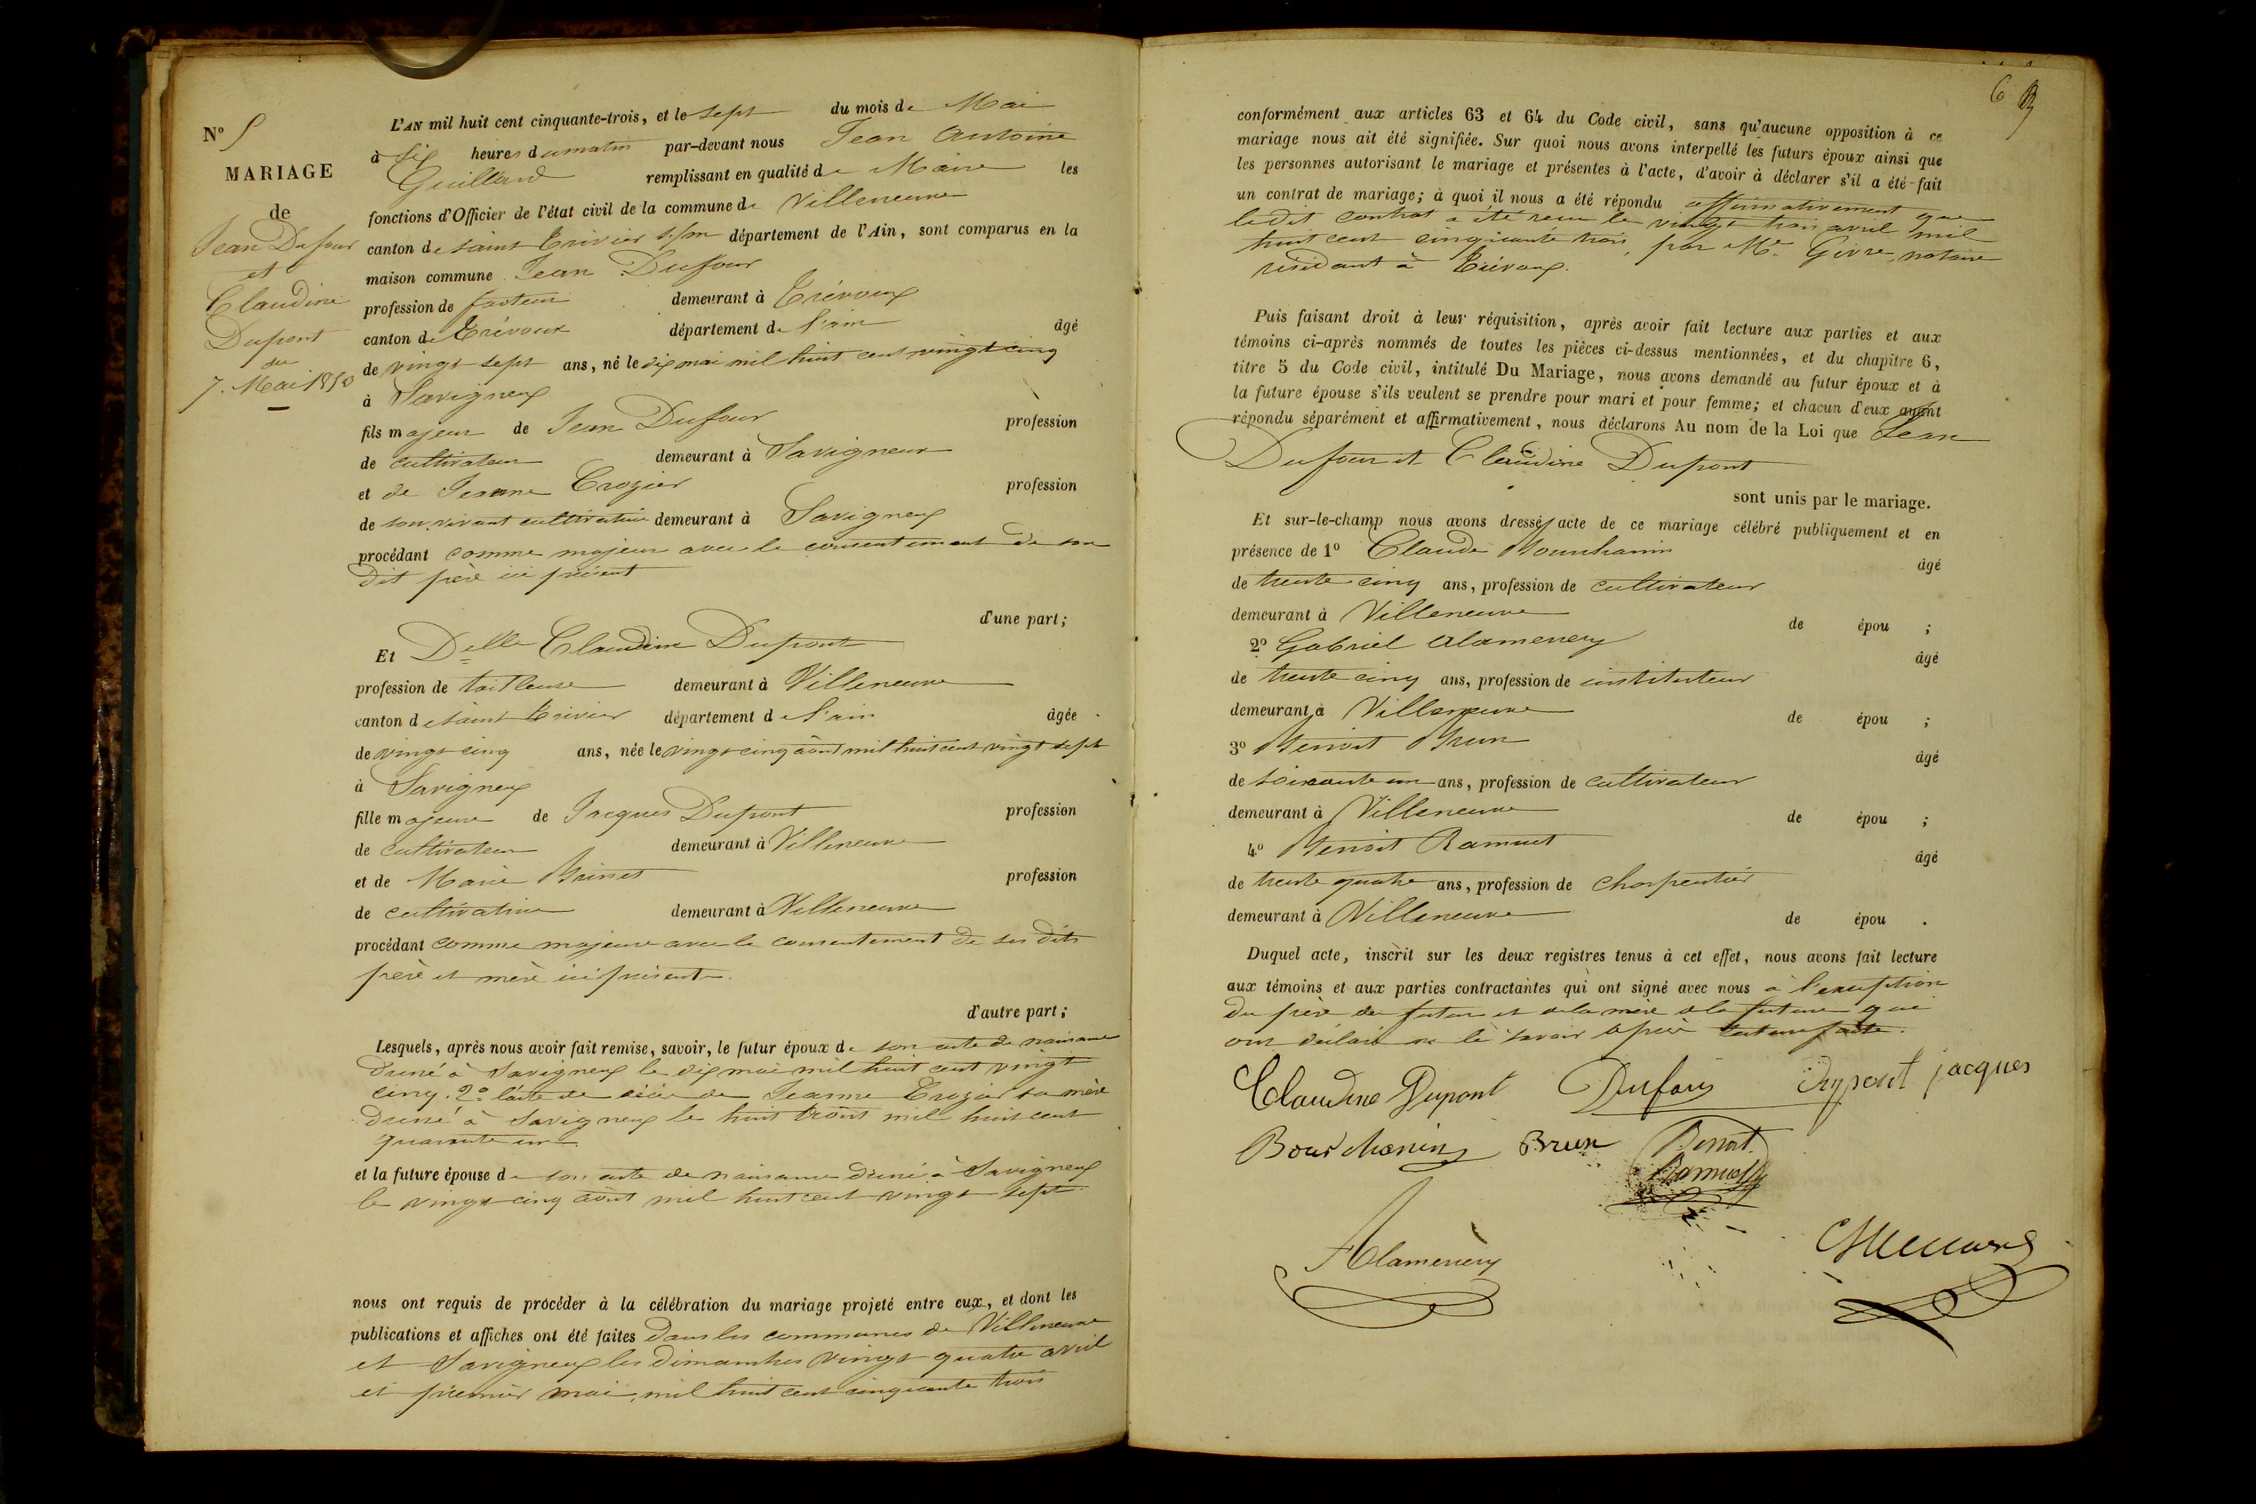 Nº 5
MARIAGE
de
Jean Dufour
et
Claudine
Dupont
du
7. Mai 1853
L'AN mil huit cent cinquante-trois, et le sept du mois de Mai
à six heures du matin par-devant nous Jean Antoine
Guillard remplissant en qualité de Maire les
fonctions d'Officier de l'état civil de la commune de Villeneuve
canton de saint Trivier département de l'Ain, sont comparus en la
maison commune Jean Dufour
profession de facteur demeurant à Trévoux
canton de Trévoux département de l'ain âgé
de vingt sept ans, né le dix mai mil huit cent vingt cinq
à Savigneux
fils majeur de Jean Dufour profession
de cultivateur demeurant à Savigneux
et de Jeanne Crozier profession
de son vivant cultivatrice demeurant à Savigneux
procédant comme majeur avec le consentement de son
dit père ici présent
d'une part;
Et Delle Claudine Dupont
profession de tailleuse demeurant à Villeneuve
canton de saint Trivier département de l'ain âgée
de vingt cinq ans, née le vingt cinq août mil huit cent vingt sept
à Savigneux
fille majeure de Jacques Dupont profession
de cultivateur demeurant à Villeneuve
et de Marie profession
de cultivatrice demeurant à Villeneuve
procédant comme majeure avec le consentement de ses dits
père et mère ici présents
d'autre part;
Lesquels, après nous avoir fait remise, savoir, le futur époux de son acte de naissance
dressé à Savigneux le dix mai mil huit cent vingt
cinq. 2º l'acte de décès de Jeanne Crozier sa mère
dressé à Savigneux le huit août mil huit cent
quarante un
et la future épouse de son acte de naissance dressé à Savigneux
le vingt cinq août mil huit cent vingt sept
nous ont requis de procéder à la célébration du mariage projeté entre eux, et dont les
publications et affiches ont été faites dans les communes de Villeneuve
et Savigneux les dimanches vingt quatre avril
et premier mai mil huit cent cinquante trois
6
conformément aux articles 63 et 64 du Code civil, sans qu'aucune opposition à ce
mariage nous ait été signifiée. Sur quoi nous avons interpellé les futurs époux ainsi que
les personnes autorisant le mariage et présentes à l'acte, d'avoir à déclarer s'il a été fait
un contrat de mariage; à quoi il nous a été répondu affirmativement que
le dit contrat a été reçu le vingt trois avril mil
huit cent cinquante trois, par Me. Givre, notaire
résidant à Trévoux.
Puis faisant droit à leur réquisition, après avoir fait lecture aux parties et aux
témoins ci-après nommés de toutes les pièces ci-dessus mentionnées, et du chapitre 6,
titre 5 du Code civil, intitulé Du Mariage, nous avons demandé au futur époux et à
la future épouse s'ils veulent se prendre pour mari et pour femme; et chacun d'eux ayant
répondu séparément et affirmativement, nous déclarons Au nom de la Loi que Jean
Dufour et Claudine Dupont
sont unis par le mariage.
Et sur-le-champ nous avons dressé acte de ce mariage célébré publiquement et en
présence de 1º Claude Bourchanin âgé
de trente cinq ans, profession de cultivateur
demeurant à Villeneuve de épou ;
2º Gabriel Alamercery âgé
de trente cinq ans, profession de instituteur
demeurant à Villeneuve de épou ;
3º Benoit Brun âgé
de soixante un ans, profession de cultivateur
demeurant à Villeneuve de épou ;
4º Benoit Ramuet âgé
de trente quatre ans, profession de charpentier
demeurant à Villeneuve de épou .
Duquel acte, inscrit sur les deux registres tenus à cet effet, nous avons fait lecture
aux témoins et aux parties contractantes qui ont signé avec nous à l'exception
du père du futur et de la mère de la future qui
ont déclaré ne le savoir après lecture faite.
Claudine Dupont Dufour Dupont jacques
Bourchanin Brun Benoit
Ramuet
Alamercery